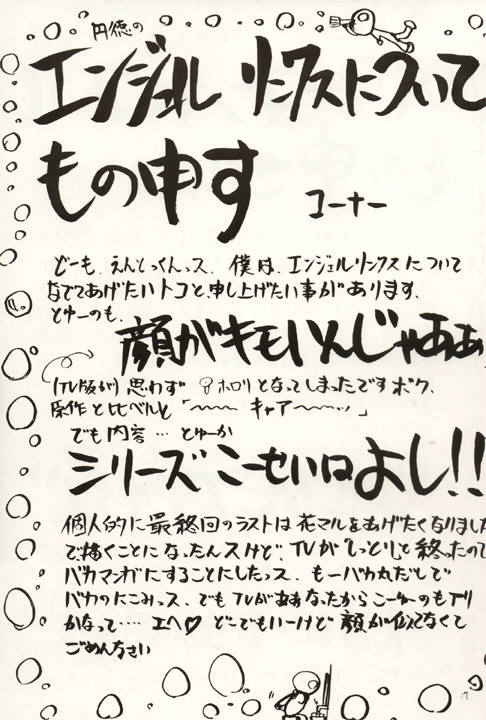 円徳の
エンジェルリンクスについて
もの申す コーナー
どーも、えんとっくんっス、僕は、エンジェルリンクスについて
なでてあげたいトコと、申し上げたい事があります、
とゆーのも、
顔がキモいんじゃあぁ
(TV版が) 思わず ホロリとなってしまったですボク、
原作と比べルと「〜〜〜キャア〜〜〜ッ」
でも内容…とゅーか
シリーズこーせいはよし!!
個人的に最終回のラストは花マルをあげたくなりました
で描くことになったんスけど、TVが「しっとり」と終ったので
バカマンガにすることにしたっス、もーバカ丸だしで
バカのにこみっス、でもTVがああなったからこーゆーのもアリ
かなって‥‥エヘ♡ どーでもいーけど顔が似てなくて
ごめんなさい